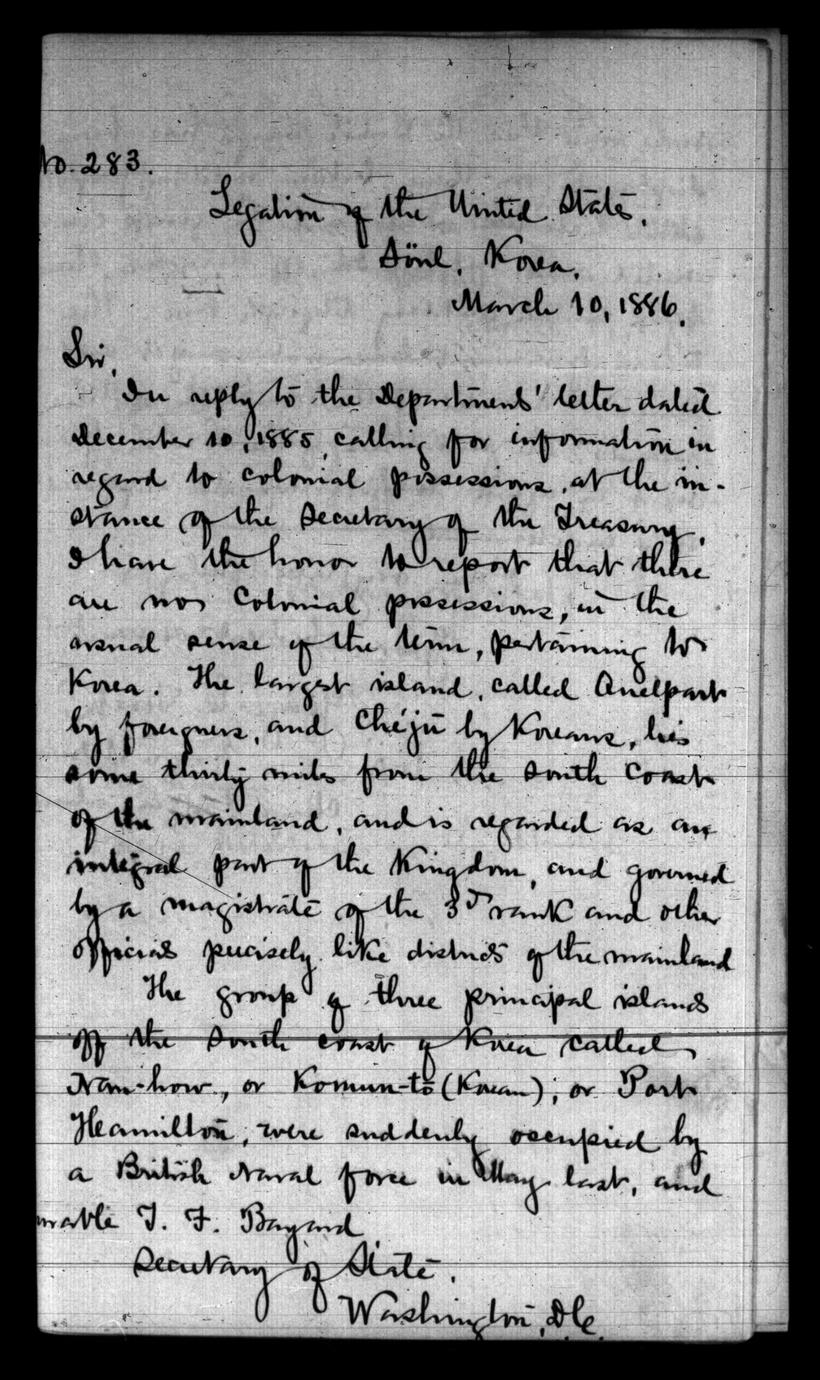 No. 283.
Legation of the United States.
Söul, Korea.
March 10, 1886.
Sir,
In reply to the Departments' letter dated
December 10, 1885, calling for information in
regard to colonial possessions, at the in-
stance of the Secretary of the Treasury,
I have the honor to report that there
are no colonial possessions, in the
usual sense of the term, pertaining to
Korea. The largest island, called Quelpart
by foreigners, and Chéjü by Koreans, lies
some thirty miles from the south coast
of the mainland, and is regarded as an
integral part of the Kingdom, and governed
by a magistrate of the 3d rank and other
officials precisely like districts of the mainland
The group of three principal islands
off the south coast of Korea called
Nan-how, or Komun-to (Korean); or Port
Hamilton, were suddenly occupied by
a British Naval force in May last, and
orable T. F. Bayard
Secretary of State.
Washington, D.C.